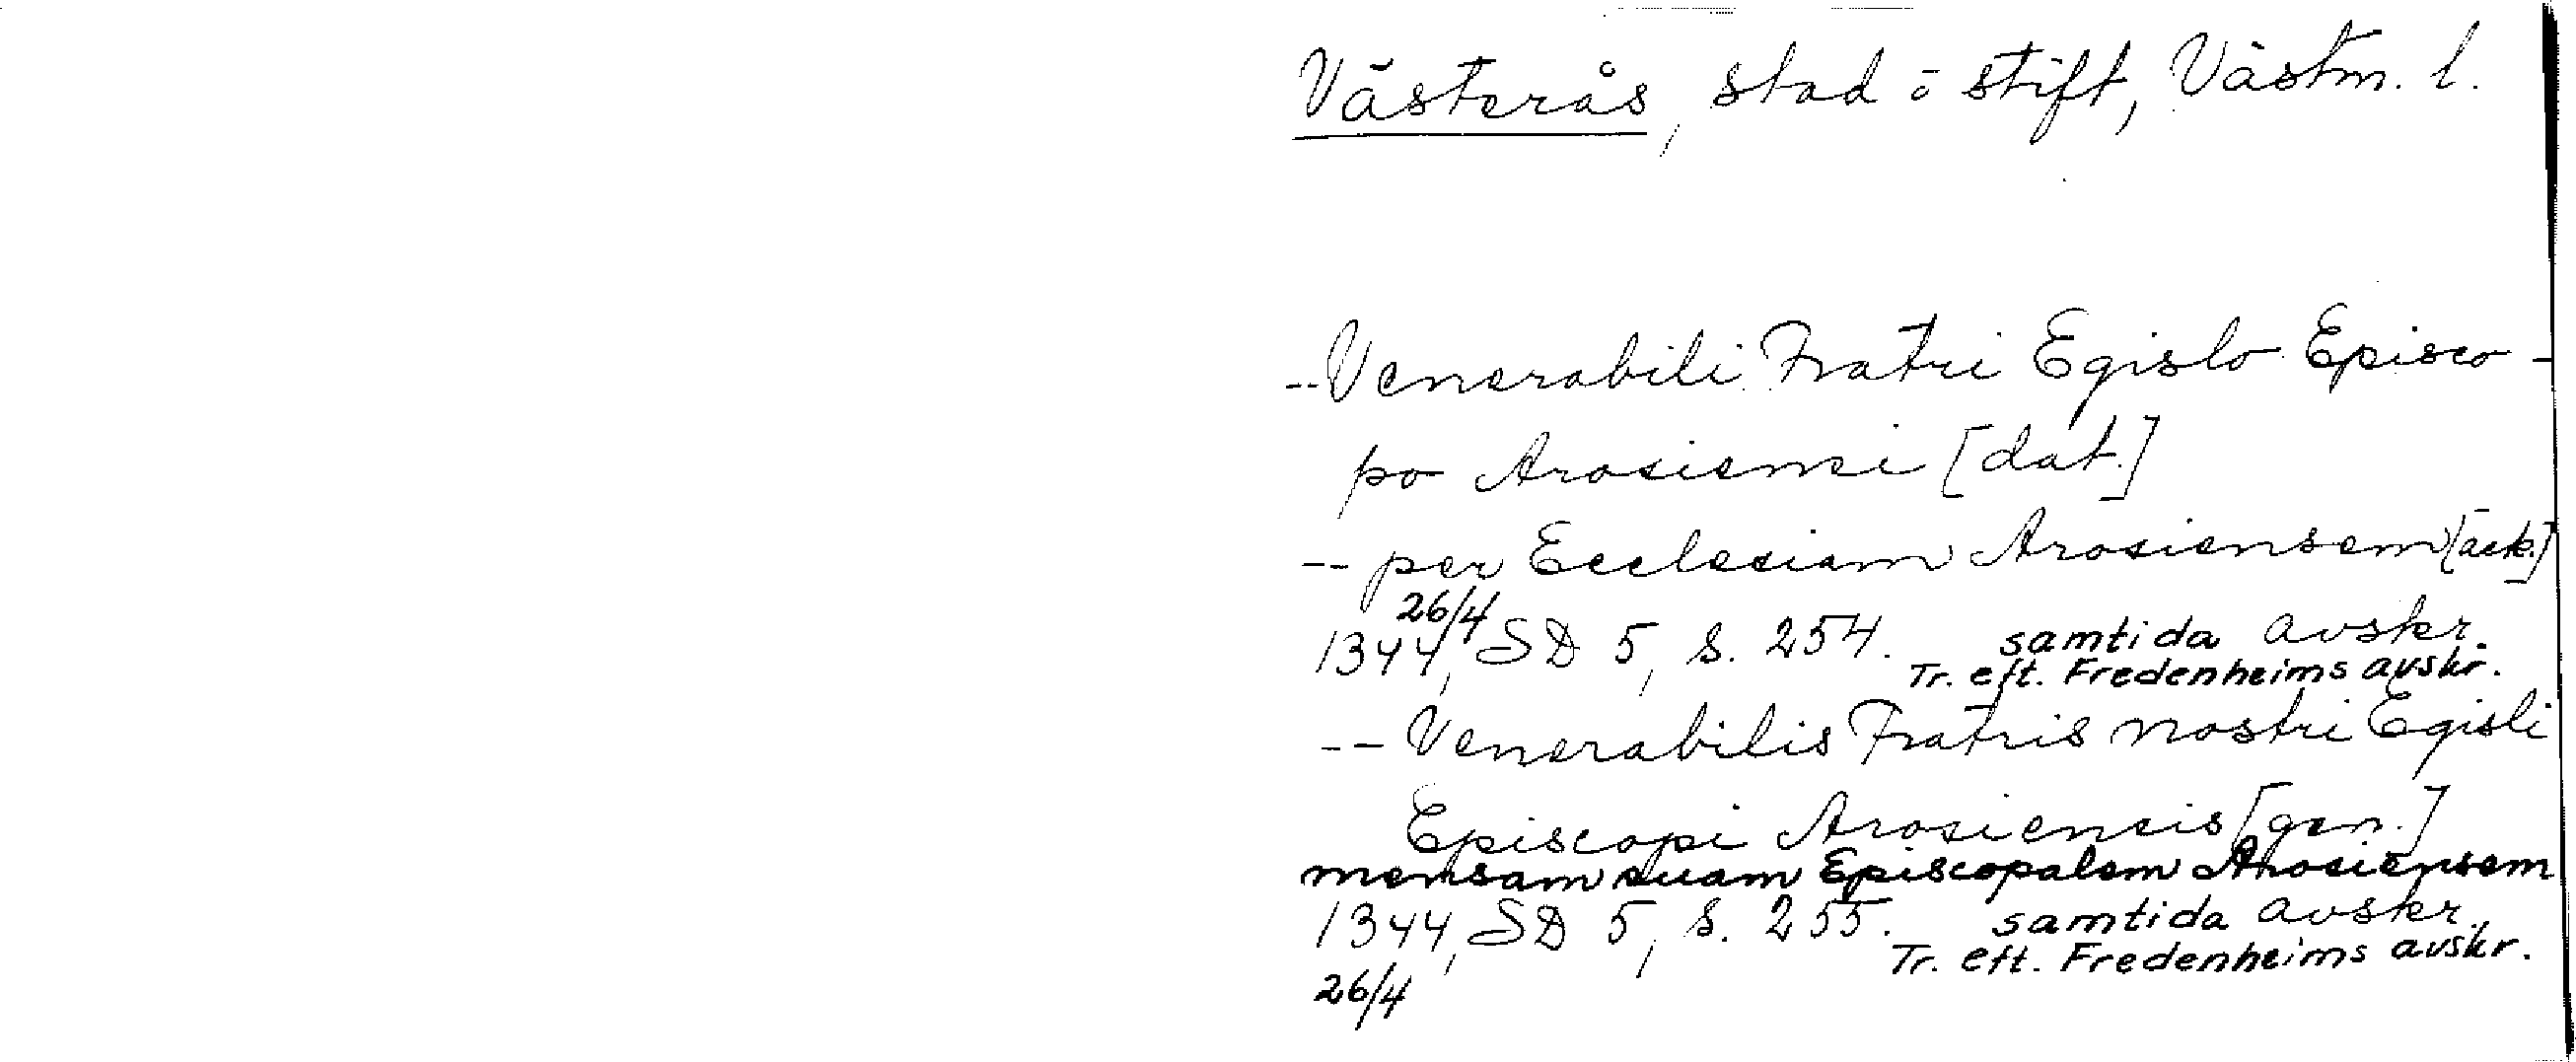 Västerås, stad o stift, Västm. l.
--Venerabili Fratri Egislo Episco-
po Arosiensi [dat.]
-- per Ecclesiam Arosiensem [ack.]
26/4
1344, SD 5, s. 254. samtida avskr.
Tr. eft. Fredenheims avskr.
-- Venerabilis Fratris nostri Egisli
Episcopi Arosiensis [gen.]
mensam suam Episcopalem Arosiensem
1344, SD 5, s. 255. samtida avskr.
Tr. eft. Fredenheims avskr.
26/4